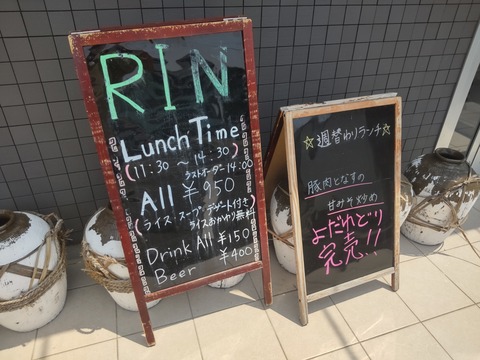 RIN
Lunch Time
(11:30～14:30)
ラストオーダー14:00
All ¥950
(ライス・スープ・デザート付き)
ライスおかわり無料
Drink All ¥150
Beer ¥400
☆週替わりランチ☆
豚肉となすの
甘みそ炒め
よだれどり
完売!!